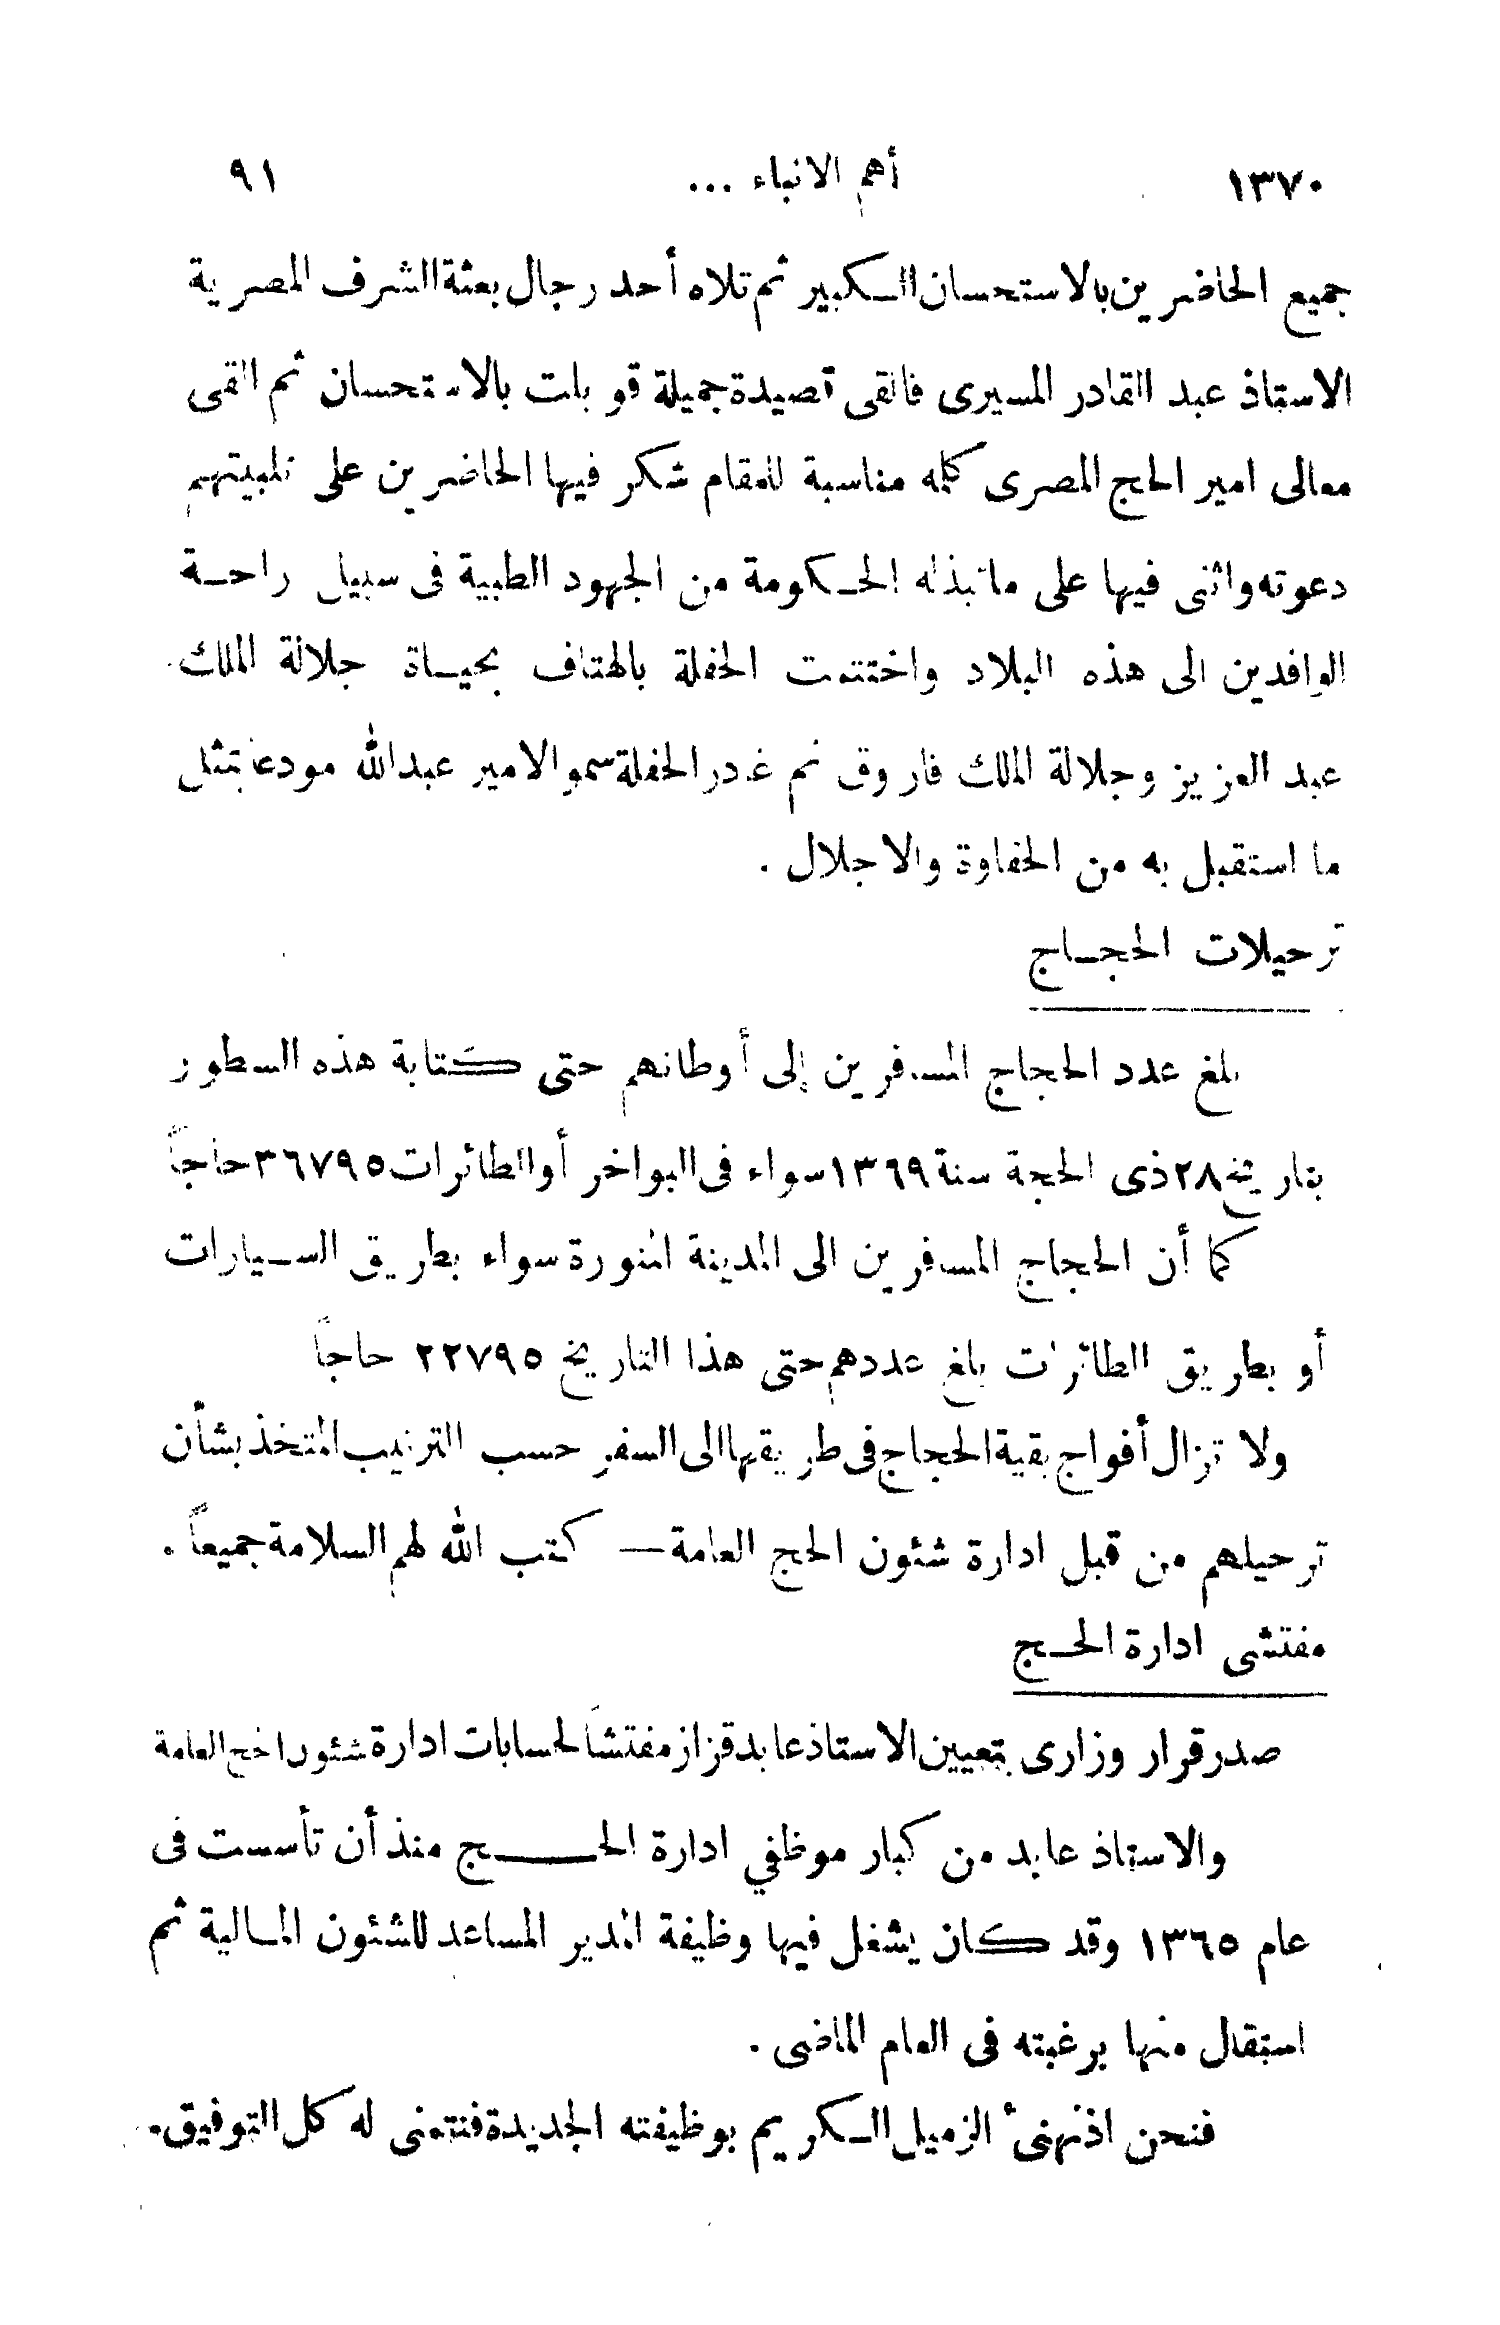 ١٣٧٠ أهم الانباء ... ٩١
جميع الحاضرين بالاستحسان الكبير ثم تلاه أحد رجال بعثة الشرف المصرية
الاستاذ عبد القادر المسيرى فالقى قصيدة جميلة قوبلت بالاستحسان ثم القى
معالى امير الحج المصرى كلمه مناسبة للمقام شكر فيها الحاضرين على تلبيتهم
دعوته واثنى فيها على ماتبذله الحكومة من الجهود الطبية فى سبيل راحة
الوافدين الى هذه البلاد واختتمت الحفلة بالهتاف بحياة جلالة الملك
عبد العزيز وجلالة الملك فاروق ثم غادر الحفلة سمو الامير عبدالله مودعا بمثل
ما استقبل به من الحفاوة والاجلال .
ترحيلات الحجاج
بلغ عدد الحجاج المسافرين إلى أوطانهم حتى كتابة هذه السطور
بتاريخ ٢٨ ذى الحجة سنة ١٣٦٩ سواء فى البواخر أو الطائرات ٣٦٧٩٥ حاجاً
كما أن الحجاج المسافرين الى المدينة المنورة سواء بطريق السيارات
أو بطريق الطائرات بلغ عددهم حتى هذا التاريخ ٢٢٧٩٥ حاجاً
ولا تزال أفواج بقية الحجاج فى طريقها الى السفر حسب الترتيب المتخذ بشأن
ترحيلهم من قبل ادارة شئون الحج العامة — كتب الله لهم السلامة جميعاً .
مفتشى ادارة الحج
صدر قرار وزارى بتعيين الاستاذ عابد قزاز مفتشاً لحسابات ادارة شئون الحج العامة
والاستاذ عابد من كبار موظفي ادارة الحج منذ أن تأسست فى
عام ١٣٦٥ وقد كان يشغل فيها وظيفة المدير المساعد للشئون المالية ثم
استقال منها برغبته فى العام الماضى .
فنحن اذ نهنئ الزميل الكريم بوظيفته الجديدة فنتمنى له كل التوفيق .